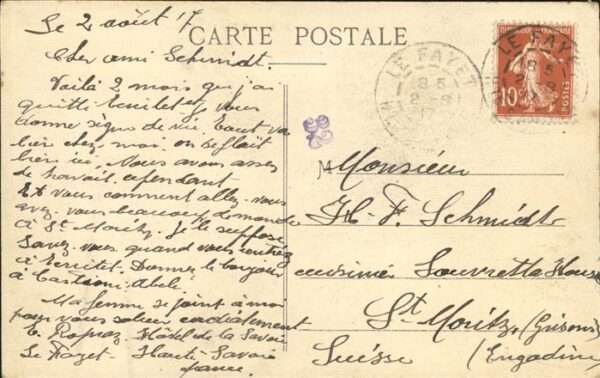 Le 2 août 17
CARTE POSTALE
Cher ami Schmidt.
Voilà 2 mois que j'ai
quitté Territet et vous
donne signe de vie. Tout va
bien chez moi. on se plait
bien ici. Nous avons assez
de travail. cependant
Et vous comment allez-vous
avez-vous beaucoup de monde
à St Moritz. Je le suppose
Savez-vous quand vous rentrez
à Territet. Donnez le bonjour
à
Ma femme se joint à moi
pour vous saluer cordialement
Hôtel de la Savoie
Le Fayet - Haute-Savoie
france.
LE FAYET
18 5
2 - 8
LE FAYET
18 5
10c
POSTES
Monsieur
H- F. Schmidt
cuisinier Souvretta House
St Moritz, (Grisons)
Suisse (Engadine)